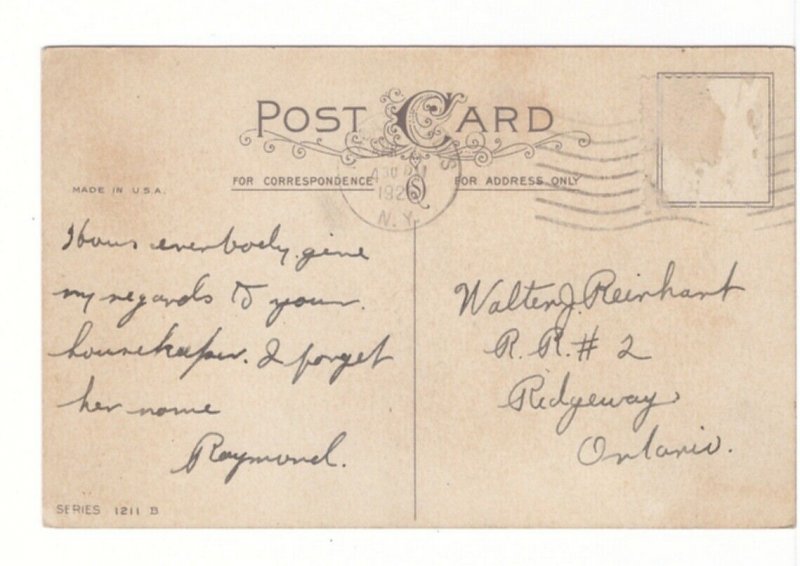 POST CARD
FOR CORRESPONDENCE
FOR ADDRESS ONLY
192
N.Y.
MADE IN U.S.A.
everbody give
my regards to your
housekeeper. I forget
her name
Raymond.
Walter J. Reinhart
R. R. # 2
Ridgeway
Ontario.
SERIES 1211 B